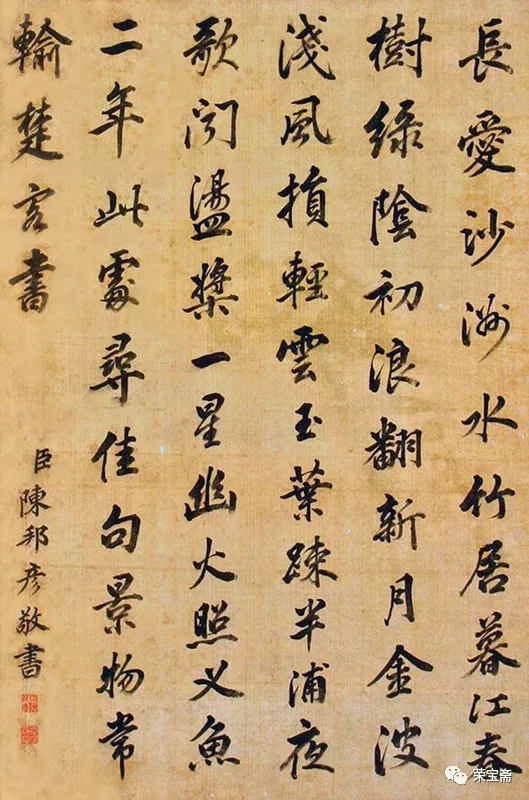 長愛沙洲水竹居暮江春
樹綠陰初浪翻新月金波
淺風損輕雲玉葉疎半浦夜
歌聞盪槳一星幽火照叉魚
二年此處尋佳句景物常
輸楚客書
臣陳邦彥敬書
荣宝斋